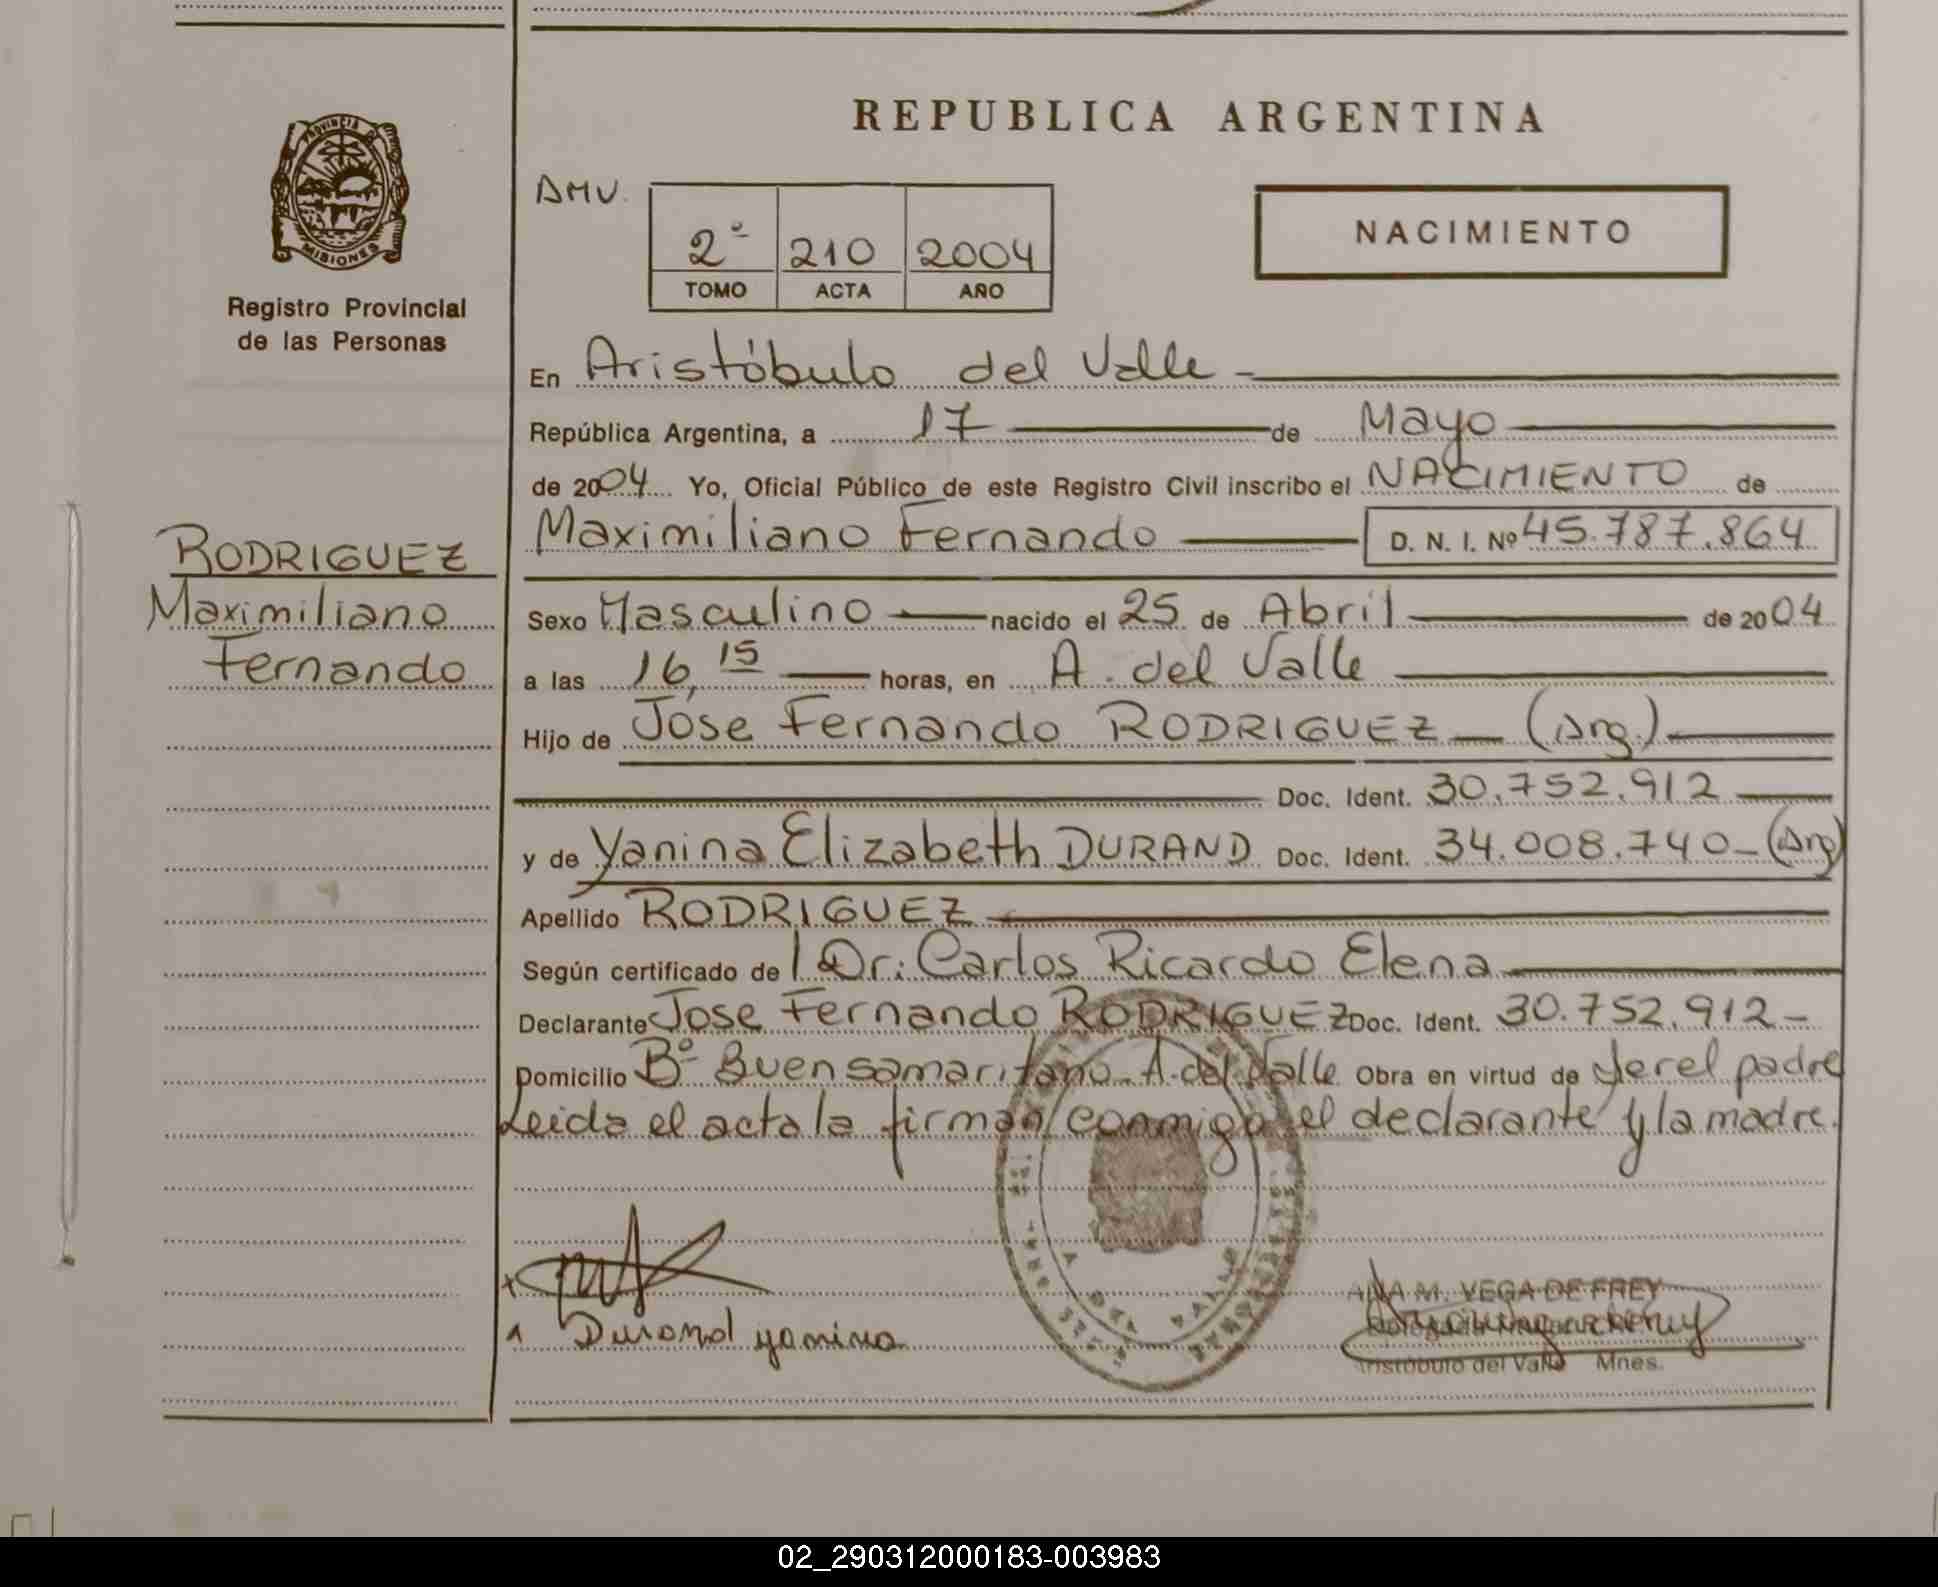 REPUBLICA ARGENTINA
PROVINCIA D
MISIONES
Registro Provincial
de las Personas
AMV.
2º 210 2004
TOMO ACTA AÑO
NACIMIENTO
En Aristóbulo del Valle
República Argentina, a 17 de Mayo
de 2004 Yo, Oficial Público de este Registro Civil inscribo el NACIMIENTO de
Maximiliano Fernando D. N. I. Nº 45.787.864
RODRIGUEZ
Maximiliano
Fernando
Sexo Masculino nacido el 25 de Abril de 2004
a las 16,15 horas, en A. del Valle
Hijo de José Fernando RODRIGUEZ (Arg.)
Doc. Ident. 30.752.912
y de Yanina Elizabeth DURAND Doc. Ident. 34.008.740 (Arg)
Apellido RODRIGUEZ
Según certificado de Dr: Carlos Ricardo Elena
Declarante Jose Fernando RODRIGUEZ Doc. Ident. 30.752.912
Domicilio Bº Buen samaritano A. del Valle Obra en virtud de ser el padre
Leida el acta la firman conmigo el declarante y la madre.
A DEL VALLE
Durand yanina
ANA M. VEGA DE FREY
Aristóbulo del Valle Mnes.
02_290312000183-003983